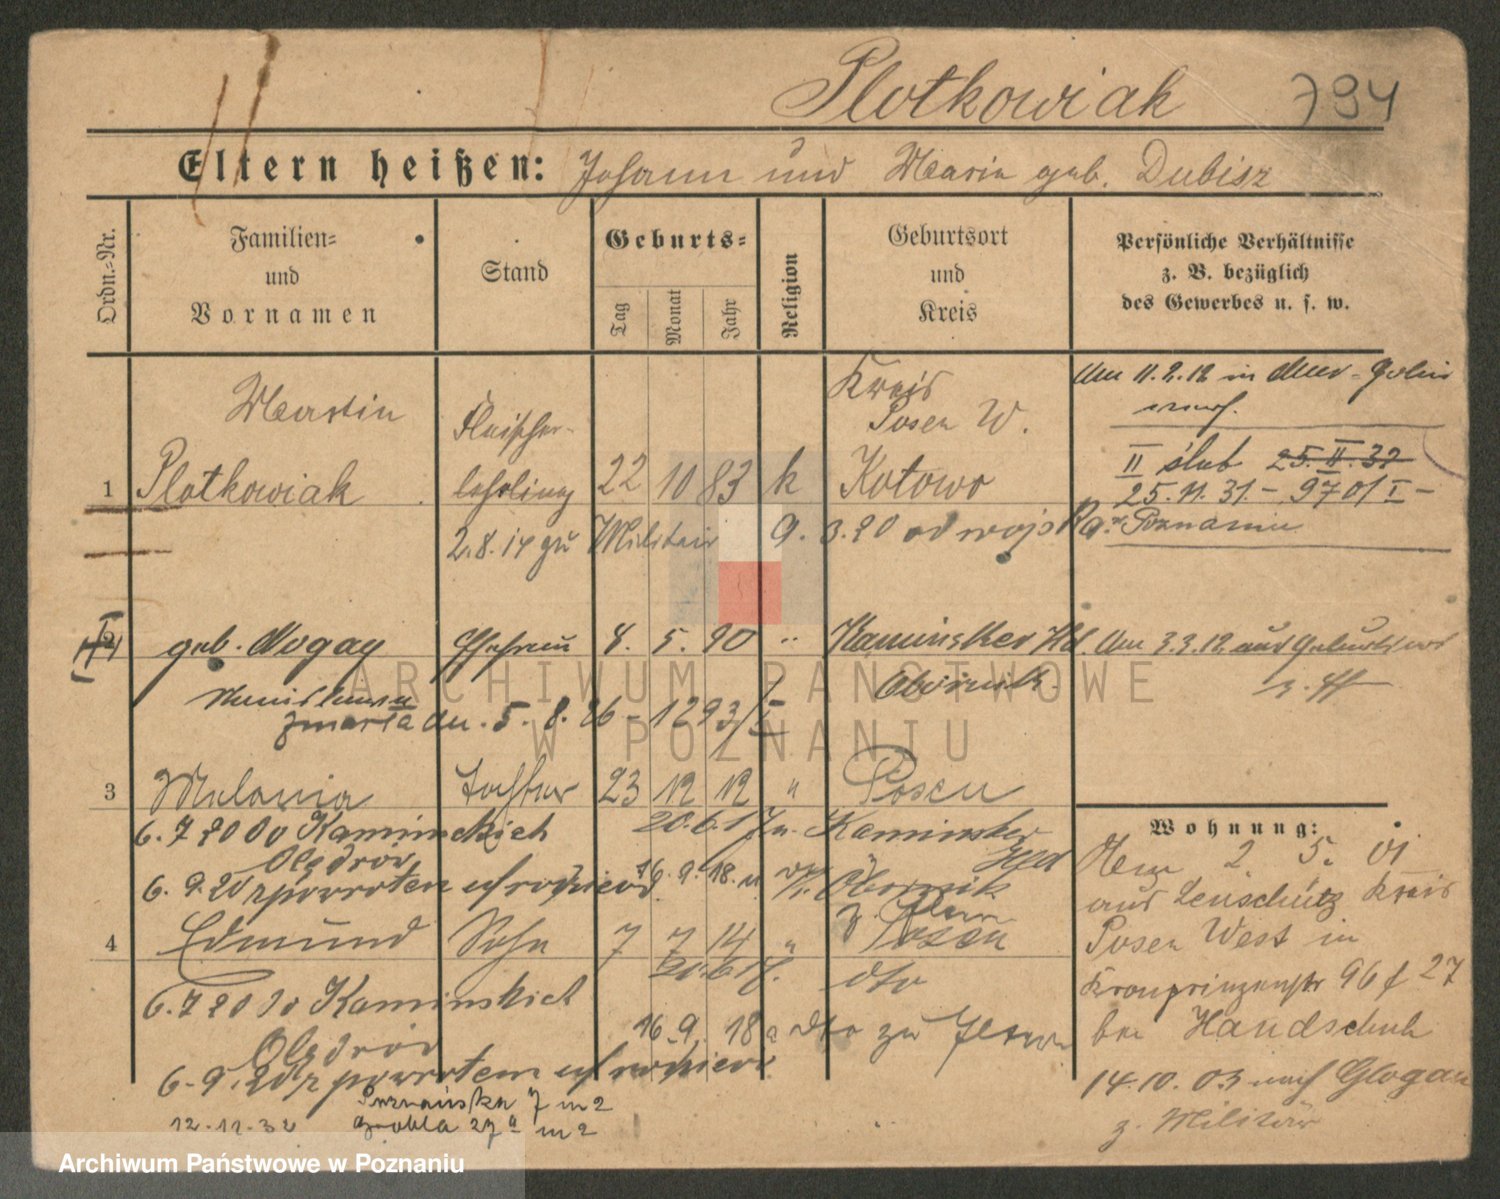 Plotkowiak 794
Eltern heißen: Johann und Maria geb. Dubisz
Ordn.=Nr.
Familien=
und
Vornamen
Stand
Geburts=
Tag
Monat
Jahr
Religion
Geburtsort
und
Kreis
Persönliche Verhältnisse
z. B. bezüglich
des Gewerbes u. s. w.
Martin
Fleischer-
Kreis
Posen W.
Am 11.2.12 in
1 Plotkowiak lehrling 22 10 83 k Kotowo
II ślub 25.II.32
25.11.31.- 9701 I -
2.8.14 zu Militair 9.3.20 od wojska
Poznaniu
2 geb. Nogay Ehefrau 4. 5. 90 " Kaminsker Hld. Am 3.3.12 auf
Obornik
zmarła dn. 5.8.26 - 1293/I
3 Melania Tochter 23 12 12 " Posen
6.7 20 do Kamińskich 20.6.17 n. Kaminsker
Olędrów Hld
6.9.20 z powrotem 16.9.18. Obornik
z. Posen
4 Edmund Sohn 7 7 14 " Posen
20.6.17. dto
6.7 20 do Kamińskich
Olędrów 16.9. 18 dto zu
6-9.20 z powrotem
Poznańska 7 m 2
12.11.32 Grobla 27a m 2
Wohnung:
2 5. 01
aus Kreis
Posen West in
Kronprinzenstr 96 f 27
bei Handschuh
14.10.03 nach Glogau
z. Militär
ARCHIWUM PAŃSTWOWE
W POZNANIU
Archiwum Państwowe w Poznaniu